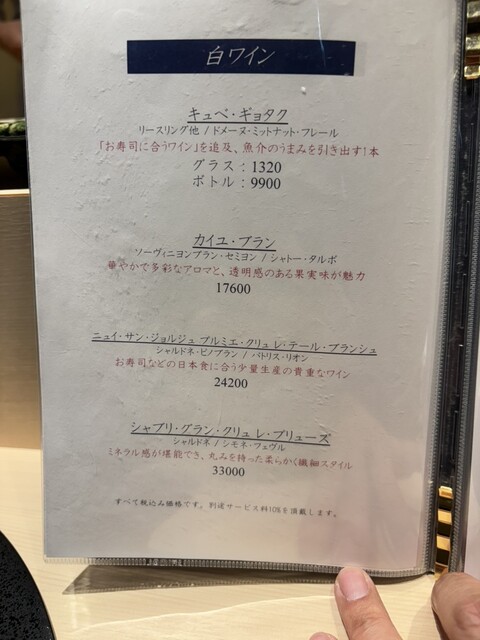 白ワイン
キュベ・ギョタク
リースリング他 / ドメーヌ・ミットナット・フレール
「お寿司に合うワイン」を追及、魚介のうまみを引き出す1本
グラス : 1320
ボトル : 9900
カイユ・ブラン
ソーヴィニヨンブラン・セミヨン / シャトー・タルボ
華やかで多彩なアロマと、透明感のある果実味が魅力
17600
ニュイ・サン・ジョルジュ プルミエ・クリュ レ・テール・ブランシュ
シャルドネ・ピノブラン / パトリス・リオン
お寿司などの日本食に合う少量生産の貴重なワイン
24200
シャブリ・グラン・クリュ レ・プリューズ
シャルドネ / シモネ・フェヴル
ミネラル感が堪能でき、丸みを持った柔らかく繊細スタイル
33000
すべて税込み価格です。別途サービス料10%を頂戴します。